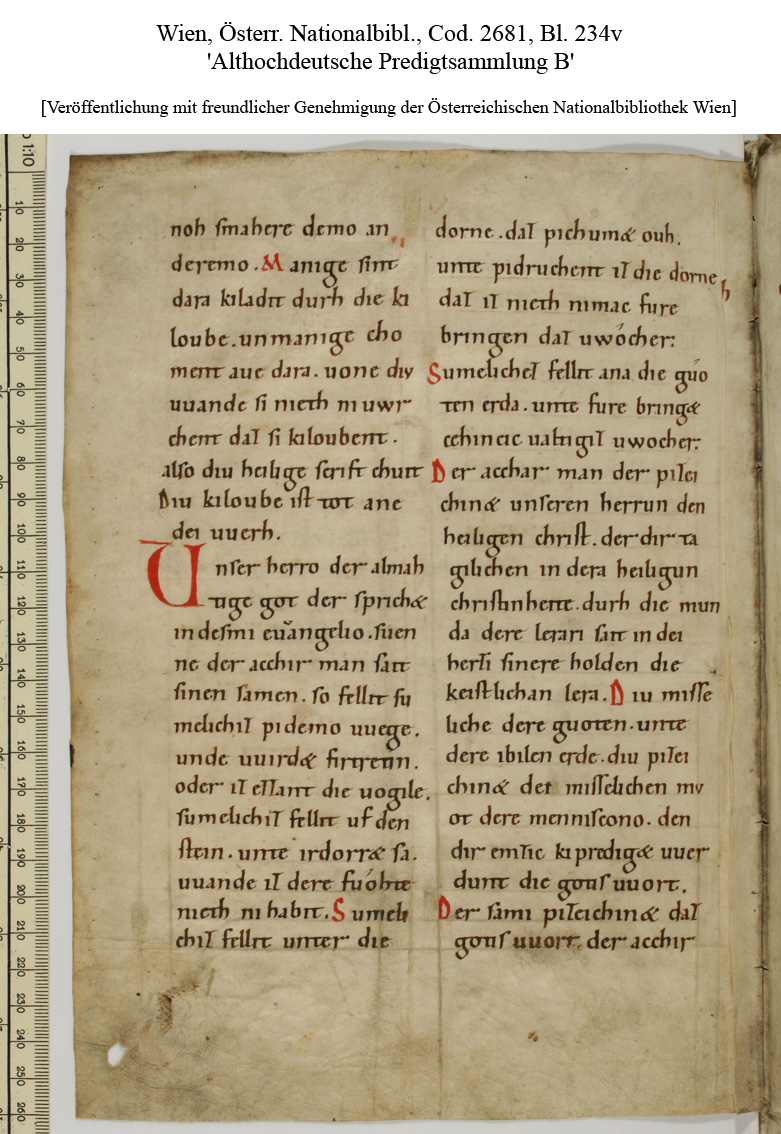 Wien, Österr. Nationalbibl., Cod. 2681, Bl. 234v
'Althochdeutsche Predigtsammlung B'
[Veröffentlichung mit freundlicher Genehmigung der Österreichischen Nationalbibliothek Wien]
noh smahere demo an
deremo. Manige sint
dara kiladit durh die ki
loube. unmanige cho
ment aue dara. uone div
uuande si nieth ni uwr
chent daz si kiloubent.
also diu heilige scrift chuit
Diu kiloube ist tot ane
dei uuerh.
Unser herro der almah
tige got der sprichet
in desmi euangelio. suen
ne der acchir man sait
sinen samen. so fellit su
melichiz pi demo uuege.
unde uuirdet firtretin.
oder iz ezzant die uogile.
sumelichiz fellit uf den
stein. unte irdorret sa.
uuande iz dere fuohte
nieth ni habit. Sumeli
chiz fellit unter die
dorne. daz pichumet ouh.
unte pidruchent iz die dorne,
daz iz nieth nimac fure
bringen daz uwocher.
Sumelichez fellit ana die guo
ten erda. unte fure bringet
cehincic ualtigiz uwocher.
Der acchar man der pizei
chinet unseren herrun den
heiligen christ. der dir ta
gilichen in dera heiligun
christinheite. durh die mun
da dere lerari sait in dei
herzi sinere holden die
keistlichan lera. Diu misse
liche dere guoten. unte
dere ibilen erde. diu pizei
chinet dei misselichen mv
ot dere menniscono. den
dir emzic ki prediget uuer
dunt die gotis uuort.
Der sami pizeichinet daz
gotis uuort. der acchir